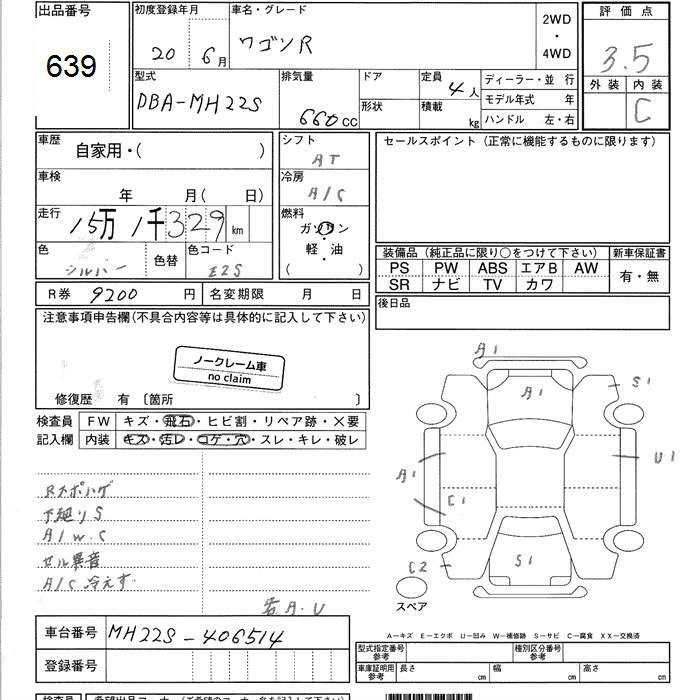 出品番号
639
初度登録年月
20 6月
車名・グレード
ワゴンR
2WD
・
4WD
評価点
3.5
外装 内装
C
型式
DBA-MH22S
排気量
660cc
ドア
形状
定員 4人
積載 kg
ディーラー・並 行
モデル年式 年
ハンドル 左・右
車歴
自家用・( )
車検
年 月( 日)
走行
15万1千329km
色
シルバー
色替
色コード
Z2S
シフト
AT
冷房
A/C
燃料
ガソリン
・
軽 油
( )
セールスポイント (正常に機能するものに限ります)
装備品 (純正品に限り○をつけて下さい)
PS PW ABS エアB AW
SR ナビ TV カワ
新車保証書
有・無
R券 9200円
名変期限 月 日
後日品
注意事項申告欄(不具合内容等は具体的に記入して下さい)
ノークレーム車
no claim
修復歴 有 〔箇所 〕
検査員
記入欄
FW キズ・飛石・ヒビ割・リペア跡・×要
内装 キズ・汚レ・コゲ・穴・スレ・キレ・破レ
Rスポハゲ
下廻りS
A/W.C
セル異音
A/C冷えず
若A.U
A1
A1
S1
A1
C1
U1
S1
C2
スペア
A−キズ E−エクボ U−凹み W−補修跡 S−サビ C−腐食 XX−交換済
車台番号
MH22S-406514
登録番号
型式指定番号
参考
種別区分番号
参考
車庫証明用
参考
長さ cm 幅 cm 高さ cm